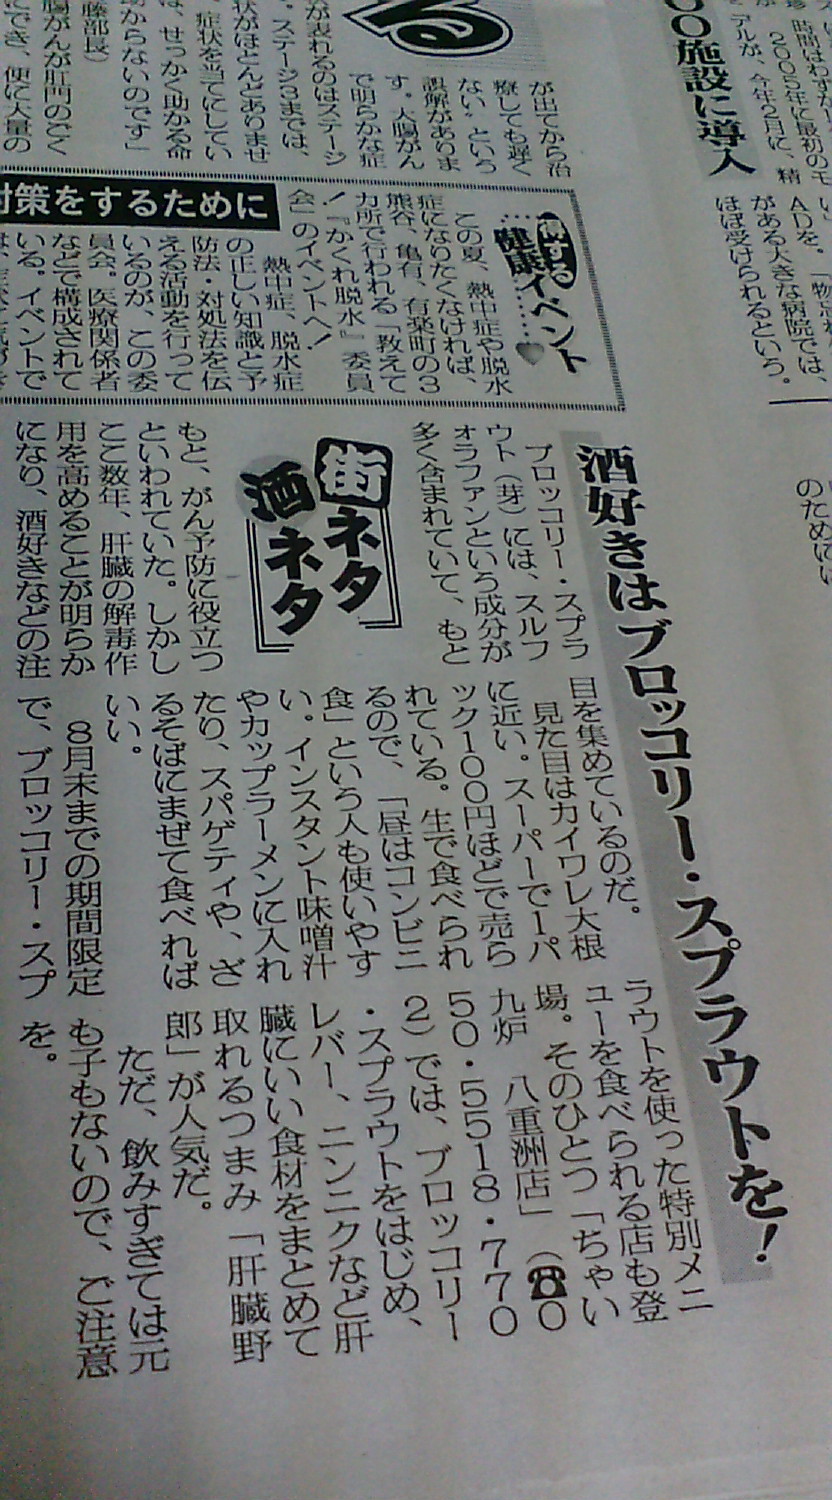 00施設に導入
時間はわずか
2005年に最初のモ
デルが、今年2月に、精
AD を。「物忘れ
がある大きな病院では、
ほぼ受けられるという。
のために
が出てから治
療しても遅く
ない〟という
誤解がありま
す。大腸がん
で明らかな症
が表れるのはステージ
ステージ3までは、
状がほとんどありませ
症状を当てにしてい
は、せっかく助かる命
助からないのです」
藤部長)
腸がんが肛門のごく
にでき、便に大量の
る
得する
健康イベント
この夏、熱中症や脱水
症になりたくなければ、
熊谷、亀有、有楽町の3
カ所で行われる「教えて
!『かくれ脱水』委員
会」のイベントへ!
熱中症、脱水症
の正しい知識と予
防法・対処法を伝
える活動を行って
いるのが、この委
員会。医療関係者
などで構成されて
いる。イベントで
対策をするために
酒好きはブロッコリー・スプラウトを!
ブロッコリー・スプラ
ウト(芽)には、スルフ
ォラファンという成分が
多く含まれていて、もと
街ネタ
酒ネタ
もと、がん予防に役立つ
といわれていた。しかし
ここ数年、肝臓の解毒作
用を高めることが明らか
になり、酒好きなどの注
目を集めているのだ。
見た目はカイワレ大根
に近い。スーパーで1パ
ック100円ほどで売ら
れている。生で食べられ
るので、「昼はコンビニ
食」という人も使いやす
い。インスタント味噌汁
やカップラーメンに入れ
たり、スパゲティや、ざ
るそばにまぜて食べれば
いい。
8月末までの期間限定
で、ブロッコリー・スプ
ラウトを使った特別メニ
ューを食べられる店も登
場。そのひとつ「ちゃい
九炉 八重洲店」(☎0
50・5518・770
2)では、ブロッコリー
・スプラウトをはじめ、
レバー、ニンニクなど肝
臓にいい食材をまとめて
取れるつまみ「肝臓野
郎」が人気だ。
ただ、飲みすぎては元
も子もないので、ご注意
を。